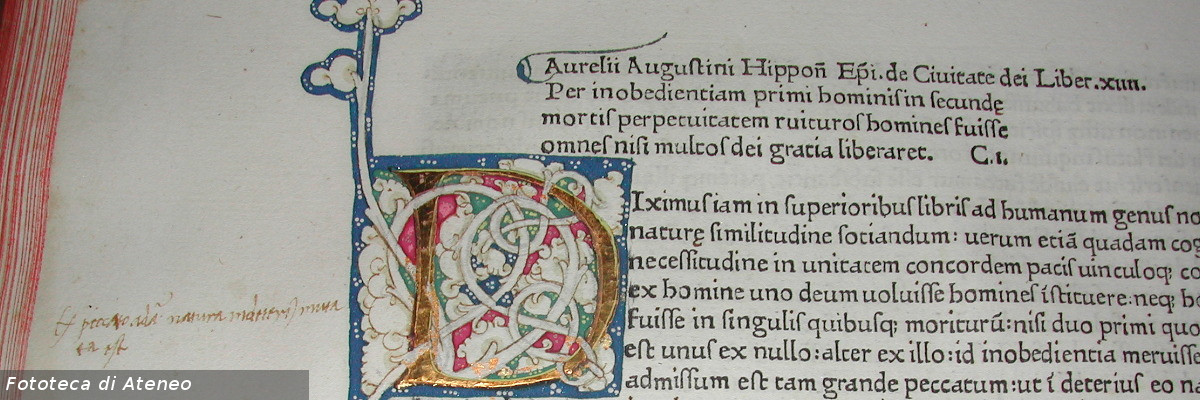 Aurelii Augustini Hippoñ Ep̄i. de Ciuitate dei Liber .xiiii.
Per inobedientiam primi hominiſ in ſecundę
mortiſ perpetuitatem ruituroſ homineſ fuiſſe
omneſ niſi multoſ dei gratia liberaret. C.i.
D
Iximuſ iam in ſuperioribuſ libriſ ad humanum genuſ no
naturę ſimilitudine ſociandum: uerum etiā quadam cog
neceſſitudine in unitatem concordem paciſ uinculoq; co
ex homine uno deum uoluiſſe homineſ iſtituere: neq; ho
fuiſſe in ſinguliſ quibuſq; moriturū: niſi duo primi quo
eſt unuſ ex nullo: alter ex illo: id inobedientia meruiſſe
admiſſum eſt tam grande peccatum: ut ī deteriuſ eo na
natura
ta est
Fototeca di Ateneo